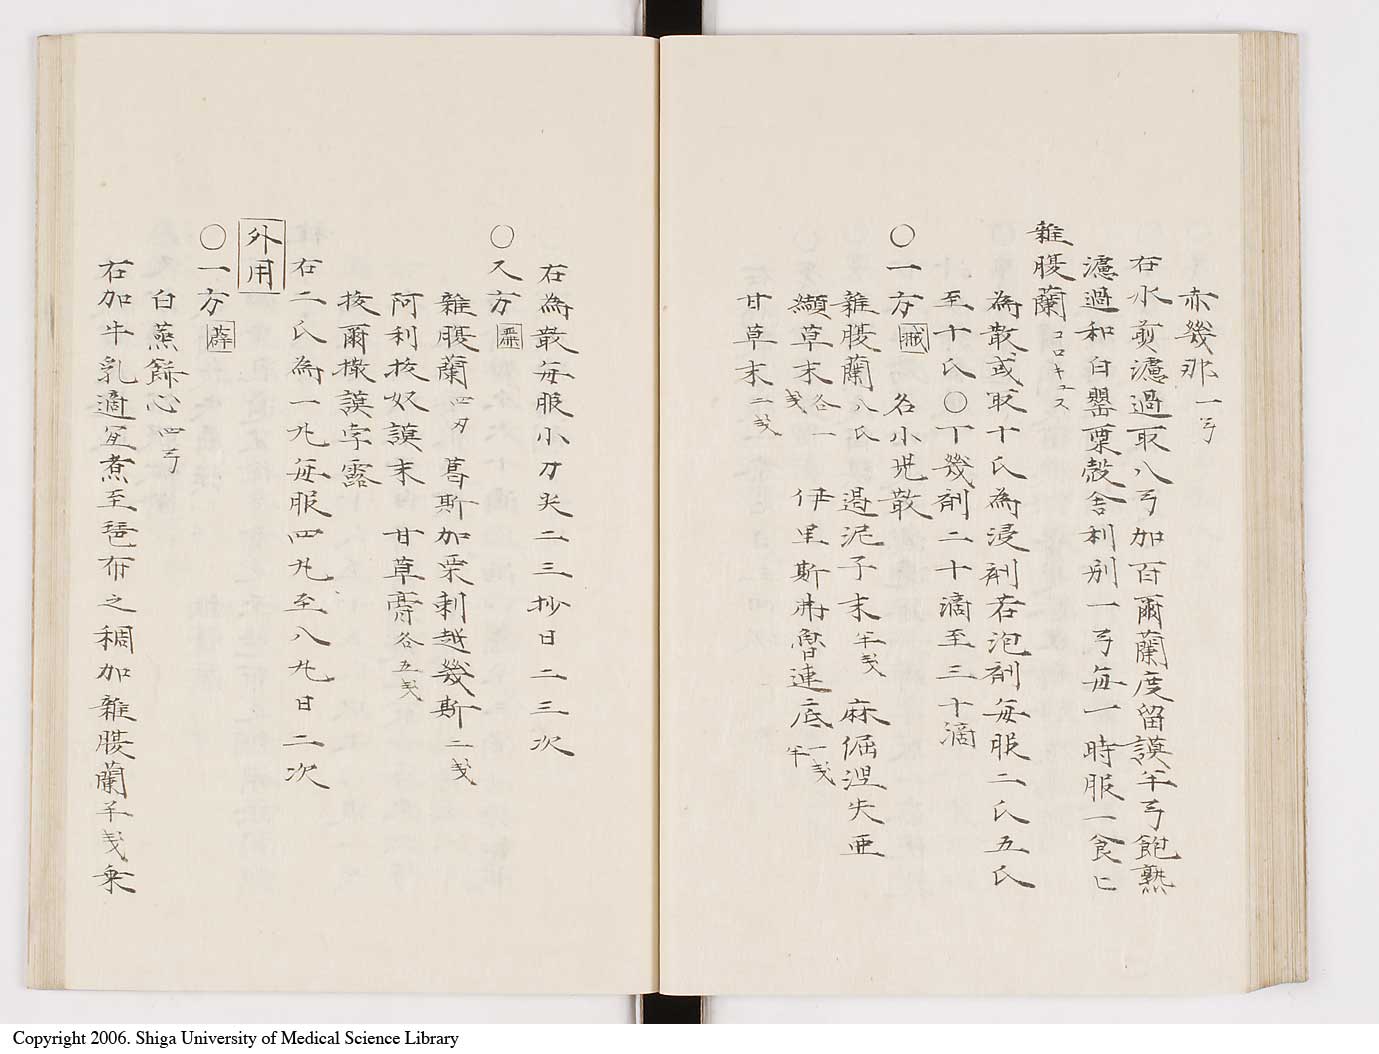 赤幾那一弓
右水煎濾過取八弓加百爾蘭度留謨半弓飽熟
濾過和白罌粟殻舎利別一弓毎一時服一食匕
雑腹蘭コロキュス
為散或取十氏為浸剤若泡剤毎服二氏五氏
至十氏〇丁幾剤二十滴至三十滴
〇一方 名小児散
雑腹蘭八氏 遏泥子末半戔 麻倔涅失亜
纈草末各一戔 伊里斯弗魯連底一戔半
甘草末二戔
右為散毎服小刀尖二三抄日二三次
〇又方
雑腹蘭四刃 葛斯加栗剌越幾斯二戔
阿利抜奴謨末 甘草膏各五戔
抜爾撒謨孛露
右二氏為一丸毎服四丸至八丸日二次
外用
〇一方
白蒸餅心四弓
右加牛乳適宜煮至琶布之稠加雑腹蘭半戔乗
Copyright 2006. Shiga University of Medical Science Library